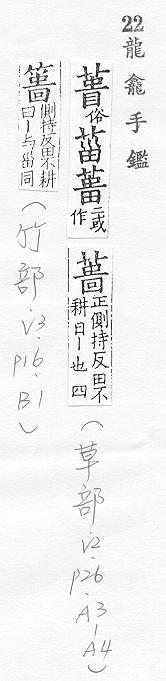 22 龍龕手鑑
葘俗菑蕾二或作
葘正側持反田不耕曰丨也四
(草部.v2.p26.A3-A4)
側持反田不耕曰丨与菑同
(竹部.v3.p16.B1)